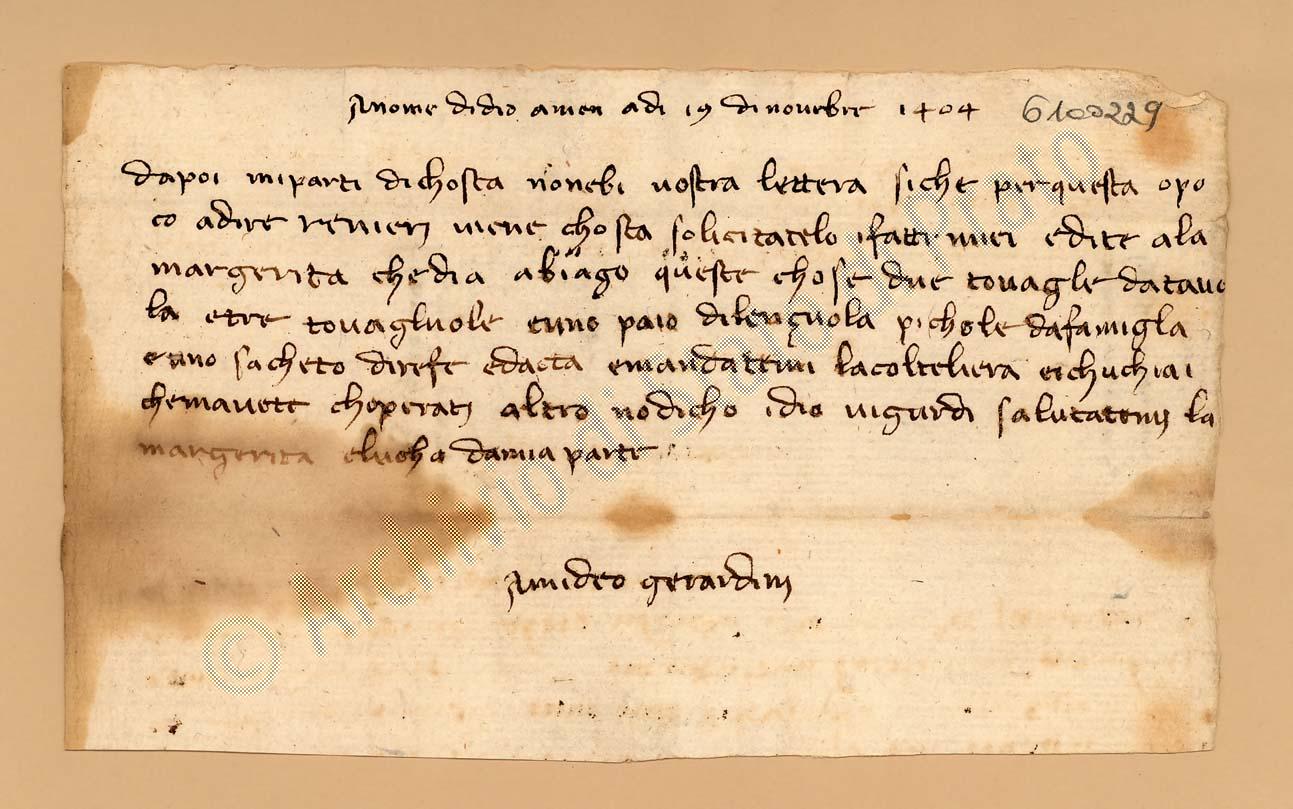 Anome didio amen adi 19 dinovebre 1404
6100229
dapoi miparti dichosta nonebi vostra lettera siche perquesta opo
co adire renieri viene chosta solicitatelo ifatti miei edite ala
margerita chedia abiago queste chose due tovagle datavo
la etre tovagluole euno paio dilençuola pichole dafamigla
euno sacheto direfe edaccia emandattimi lacolteliera eichuchiai
chemavete choperati altro nodicho idio vigurdi salutatemi la
margerita elucha damia parte
Amideo gerardini
© Archivio di Stato di Prato